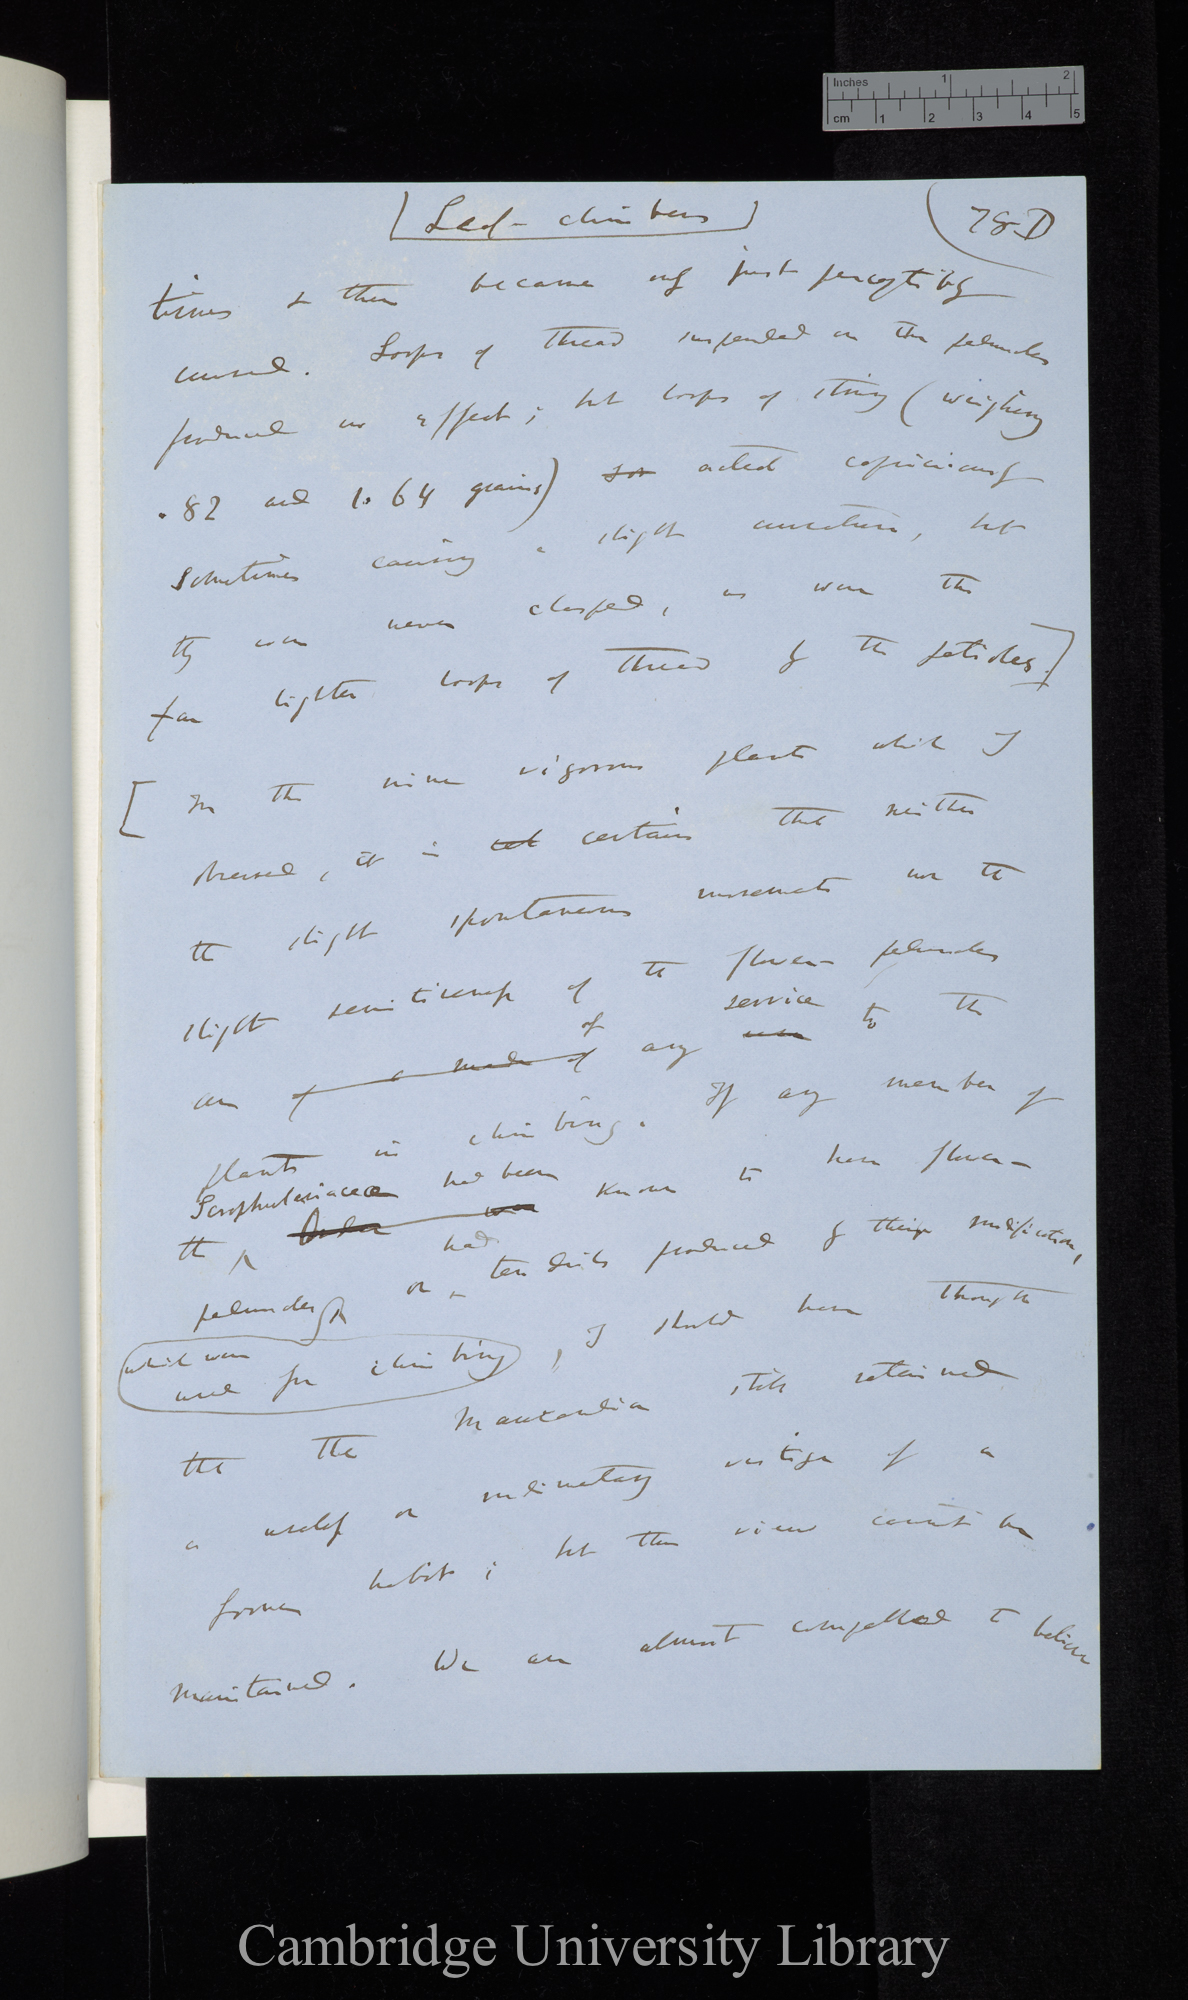 Inches 1 2
cm 1 2 3 4 5
[Leaf-climbers]
78-D
times & then became only just perceptibly
curved. Loops of thread suspended on the peduncles
produced no effect; but loops of string (weighing
.82 and 1.64 grains) acted capriciously
sometimes causing a slight curvature, but
they were never clasped, as were the
far lighter loops of thread by the petioles.]
[In the nine vigorous plants which I
observed, it is certain that neither
the slight spontaneous movements nor the
slight sensitiveness of the flower-peduncles
of service
are of a made of any use to the
plants in climbing. If any member of
Scrophulariaceæ had been
the Order was known to have flower-
had
peduncles, or tendrils produced by their modification,
which were
used for climbing, I should have thought
that the Maurandia still retained
a useless or rudimentary vestige of a
former habit; but this view cannot be
maintained. We are almost compelled to believe
Cambridge University Library